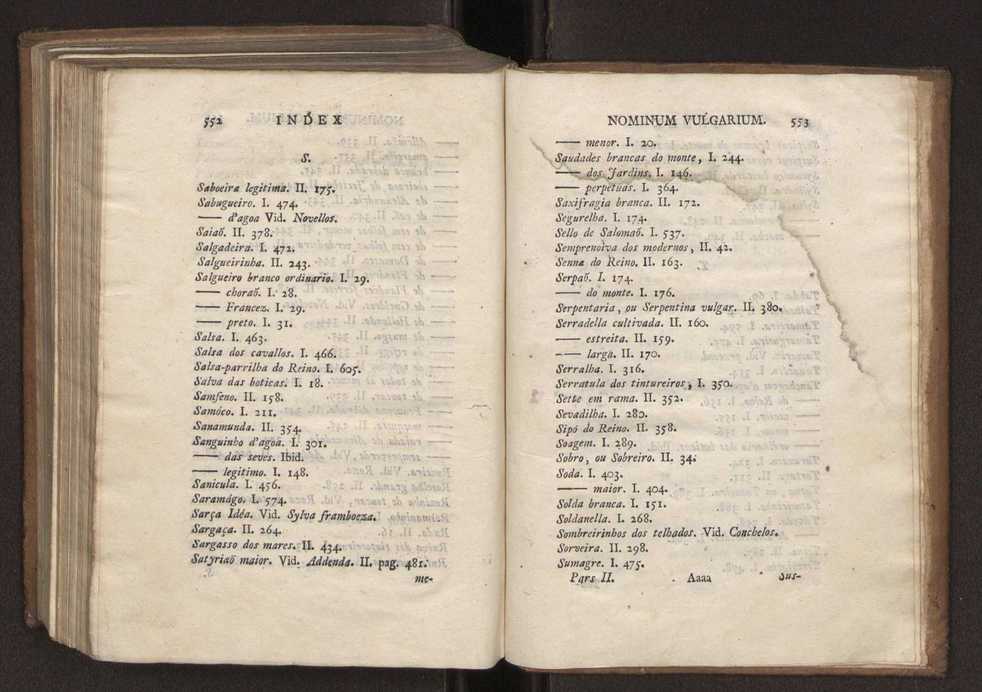 552 INDEX
S.
Saboeira legitima. II. 175.
Sabugueiro. I. 474.
—— d'agoa Vid. Novellos.
Saiaõ. II. 378.
Salgadeira. I. 472.
Salgueirinha. II. 243.
Salgueiro branco ordinario. I. 29.
—— choraõ. I. 28.
—— Francez. I. 29.
—— preto. I. 31.
Salsa. I. 463.
Salsa dos cavallos. I. 466.
Salsa-parrilha do Reino. I. 605.
Salva das boticas. I. 18.
Samfeno. II. 158.
Samóco. I. 211.
Sanamunda. II. 354.
Sanguinho d'agoa. I. 301.
—— das seves. Ibid.
—— legitimo. I. 148.
Sanicula. I. 456.
Saramágo. I. 574.
Sarça Idéa. Vid. Sylva framboeza.
Sargaça. II. 264.
Sargasso dos mares. II. 434.
Satyriaõ maior. Vid. Addenda. II. pag. 481.
me-
NOMINUM VULGARIUM. 553
—— menor. I. 20.
Saudades brancas do monte, I. 244.
—— dos Jardins. I. 146.
—— perpetuas. I. 364.
Saxifragia branca. II. 172.
Segurelha. I. 174.
Sello de Salomaõ. I. 537.
Semprenoiva dos modernos, II. 42.
Senna do Reino. II. 163.
Serpaõ. I. 174.
—— do monte. I. 176.
Serpentaria, ou Serpentina vulgar. II. 380.
Serradella cultivada. II. 160.
—— estreita. II. 159.
—— larga. II. 170.
Serralha. I. 316.
Serratula dos tintureiros, I. 350.
Sette em rama. II. 352.
Sevadilha. I. 280.
Sipó do Reino. II. 358.
Soagem. I. 289.
Sobro, ou Sobreiro. II. 34.
Soda. I. 403.
—— maior. I. 404.
Solda branca. I. 151.
Soldanella. I. 268.
Sombreirinhos dos telhados. Vid. Conchelos.
Sorveira. II. 298.
Sumagre. I. 475.
Pars II. Aaaa Sus-